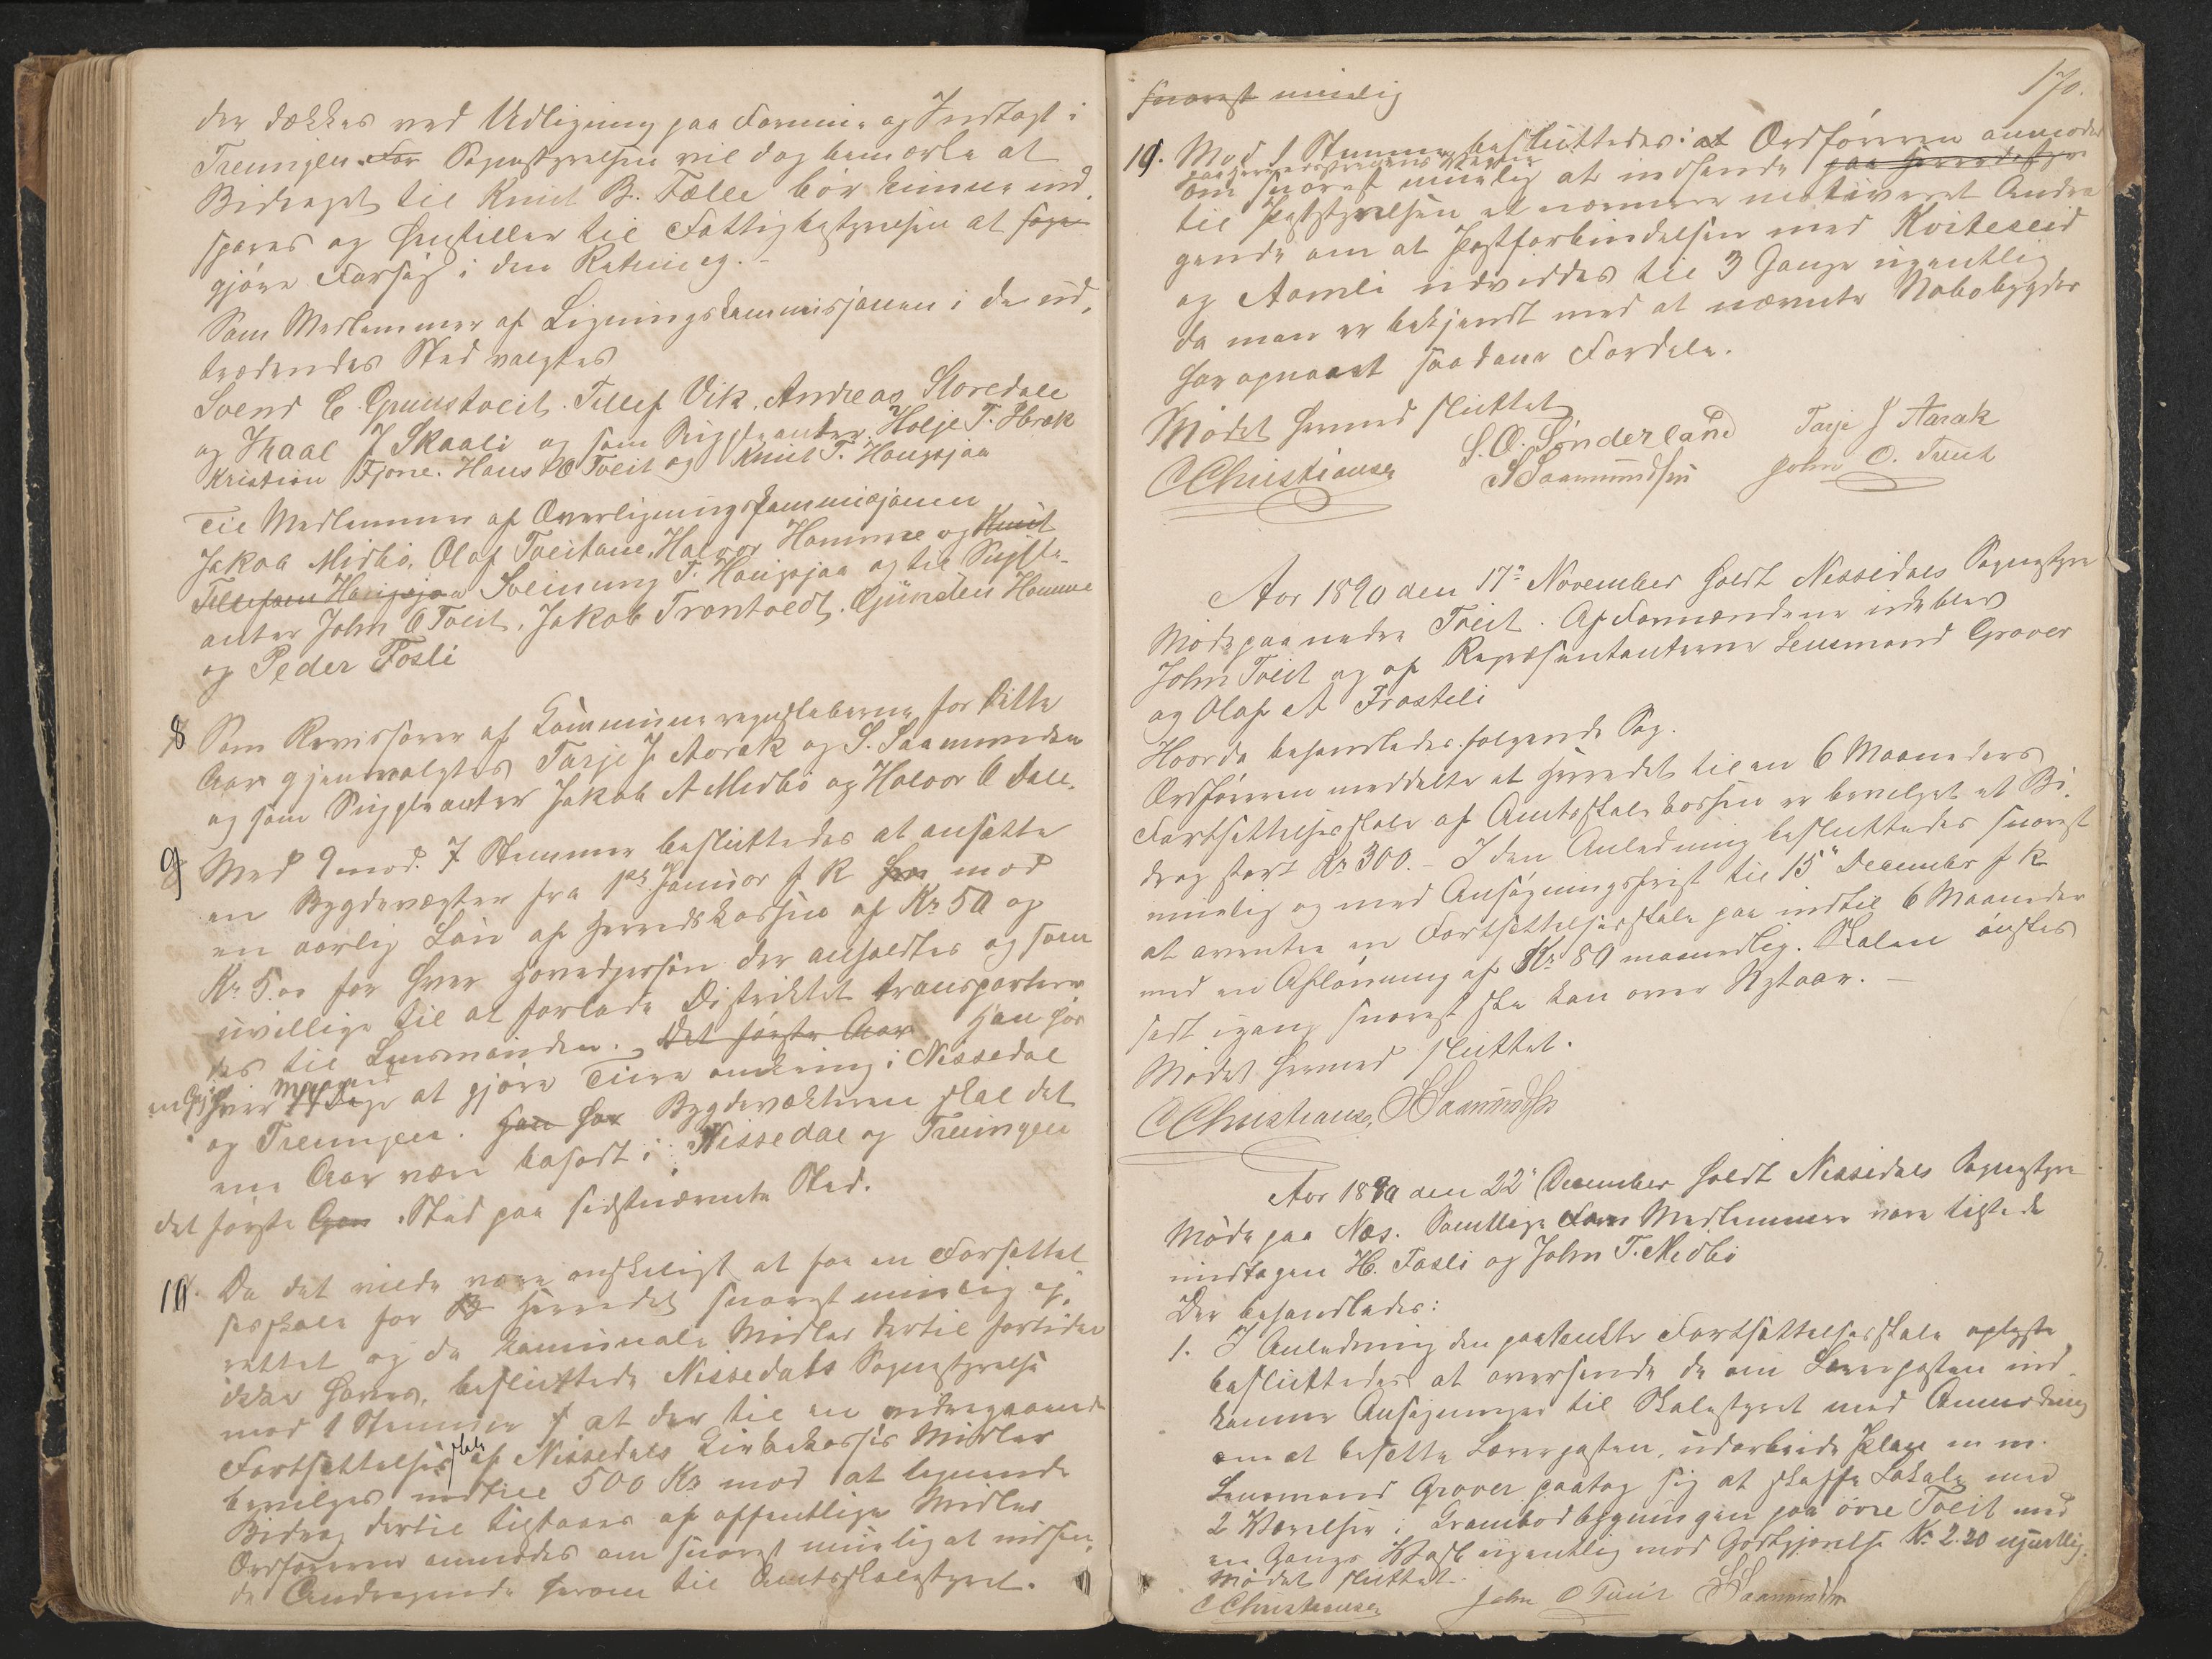 der dækkes ved Udligning paa Formue og Indtægt i
Treungen. For Sognestyrelsen vil dog bemærke at
Bidraget til Knut B. Fælle bör kunne ind
spares og henstiller til Fattigbestyrelsen at søge
gjöre Forsög i den Retning. -
Som Medlemmer af Ligningskommisjonen i de ud,
trædendes Sted valgtes
Svend C. Grunstveit. Tellef Vik, Andreas Storedale
og Thaal J Skaali og som Suppleanter Holje T. Hvak
Kristian Fjone. Hans O Tveit og Knut T. Haugsjaa
Til Medlemmer af Overligningskommisjonen
Jakob Midbö, Olaf Tveitane, Halvor Homme og Knut
Tellefsen Haugsjaa Sveinung T. Haugsjaa og til Supple-
anter John O Tveit, Jakob Trontvedt. Gunder Homme
og Peder Fosli
8 Som Revisorer af Kommuneregnskaberne for dette
Aar gjenvalgtes Tarje J. Aarak og S. Saamundsen
og som Suppleanter Jakob A Midbö og Halvor O Dale.
9 Med 9 mod 7 Stemmer besluttedes at ansætte
en Bygdevægter fra 1ste Januar f k mod
en aarlig Lön af Herredskassen af Kr 50 og
Kr. 5.00 for hver Hovedperson der anholdtes og som
uvillige til at forlade Distriktet transporteres
des til Lensmanden. Det förste Aar Han har
en Gang hver Maaned 14 Dage at gjöre Ture omkring i Nissedal
og Treungen. Han har Bygdevækteren skal det
ene Aar være bosat i Nissedal og Treungen
det förste Gan Sted paa sidstnævnte Sted.
10. Da det vilde være önskeligt at faa en Fortsættel
sesskole for B Herredet snarest mulig op,
rettet og da kommunale Midler dertil fortiden
ikke haves, besluttede Nissedals Sognestyrelse
mod 1 Stemme at der til en vedragaaende
Fortsættelsesskole af Nissedals Kirkekasses Midler
bevilges indtil 500 Kr mod at lignende
Bidrag dertil tilstaaes af offentlige Midler
Ordföreren anmodes om snarest mulig at indsen,
de Andragende herom til Amtsskolestyret.
170.
snarest mulig
10. Mod 1 Stemme besluttedes: at Ordföreren anmodes
paa Herredsstyrelsens Vegne
om snarest mulig at indsende paa Herredsstyre
til Poststyrelsen et nærmere motiveret Andra
gende om at Postforbindelsen med Kviteseid
og Aamli udvides til 3 Gange ugentlig
da man er bekjendt med at nævnte Nabobygder
har opnaaet saadane Fordele.
Mödet hermed sluttet
S. O. Sönderland Tarje J Aarak
C Christiansen S Saamundsen John O. Tveit
Aar 1890 den 17de November holdt Nissedals Sognestyre
Möde paa nedre Tveit. Af Formændene udeblev
John Tveit og af Repræsentanterne Lensmand Graver
og Olaf A Frasteli
Hvorda behandledes fölgende Sag.
Ordföreren meddelte at Herredet til en 6 Maaneders
Fortsættelsesskole af Amtsskolekassen er bevilget et Bi,
drag stort Kr 300. - I den Anledning besluttedes snarest
mulig og med Ansögningsfrist til 15de December f k
at avertere en Fortsættelsesskole paa indtil 6 Maaneder
med en Aflönning af Kr 80 maanedlig. Skolen önskes
sat igang snarest ske kan over Nytaar. -
Mödet hermed sluttet.
C Christiansen, S Saamundsen
Aar 1890 den 22de December holdt Nissedals Sognestyre
Möde paa Næs. Samtlige Form Medlemmer vare tilstede
undtagen H. Fosli og John T. Medbö
Der behandledes:
1. I Anledning den paatænkte Fortsættelsesskole oplyste
besluttedes at oversende de om Lærerposten ind
komne Ansögninger til Skolestyret med Anmodning
om at besætte Lærerposten, udarbeide Plan m m.
Lensmand Graver paatog sig at skaffe Lokale med
2 Værelser i Krambodbygningen paa övre Tveit med
en Gangs Vask ugentlig mod Godtgjörelse Kr 2.20 ugentlig.
Mödet sluttet.
C Christiansen John O Tveit S Saamundsen